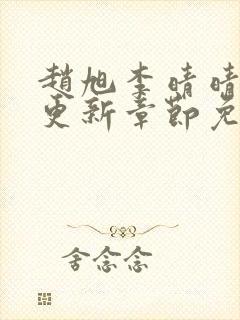 趙旭李晴晴
更新章節免
舍念念